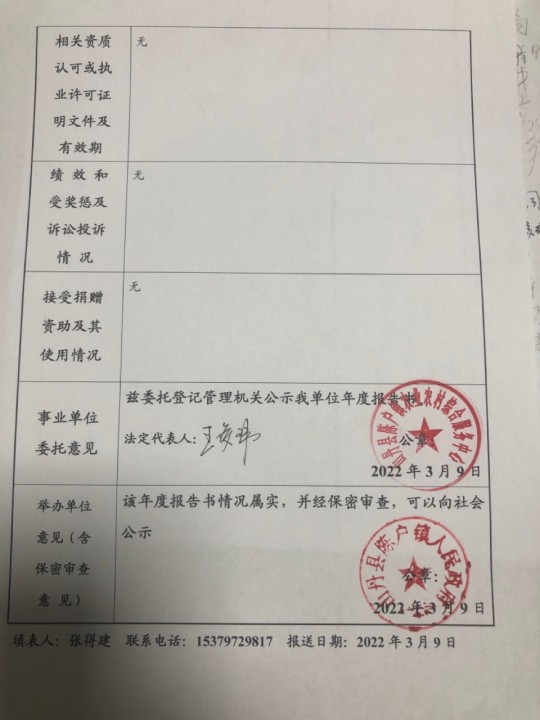 相关资质
认可或执
业许可证
明文件及
有效期
无
绩效和
受奖惩及
诉讼投诉
情况
无
接受捐赠
资助及其
使用情况
无
事业单位
委托意见
兹委托登记管理机关公示我单位年度报告书。
法定代表人：
公章：
山丹县陈户镇农业农村综合服务中心
2022年3月9日
举办单位
意见（含
保密审查
意见）
该年度报告书情况属实，并经保密审查，可以向社会
公示
公章：
山丹县陈户镇人民政府
2022年3月9日
填表人：张得建 联系电话：15379729817 报送日期：2022年3月9日